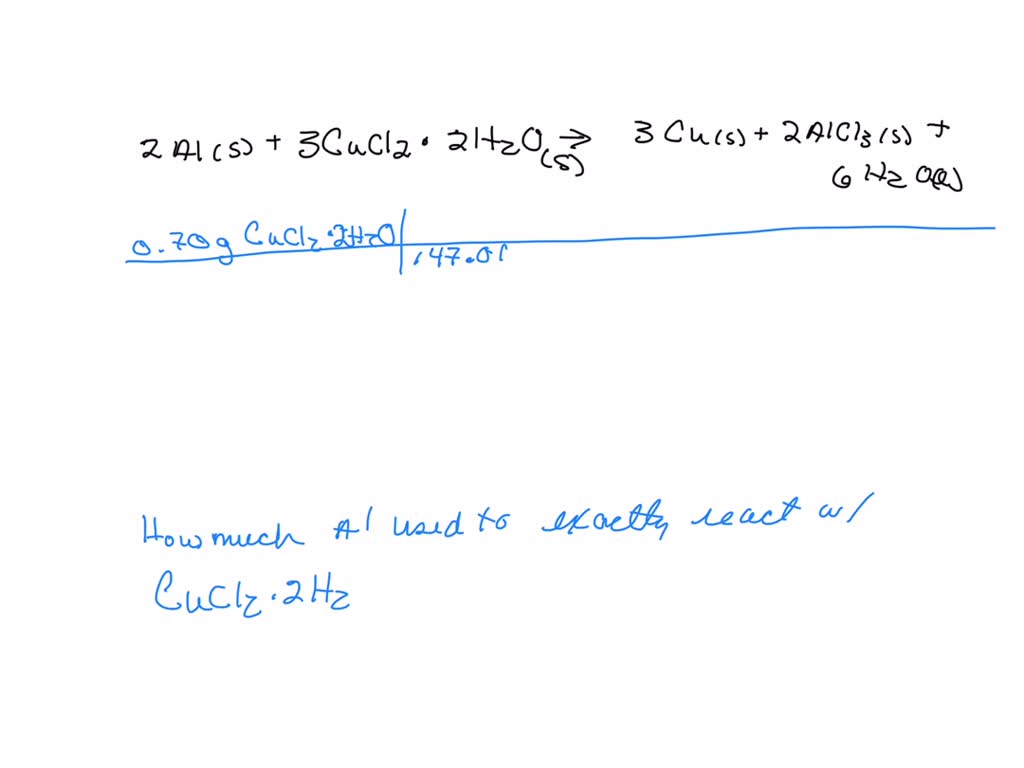 2 Al(s) + 3CuCl2 · 2H2O(s) → 3 Cu(s) + 2AlCl3(s) +
6 H2O(l)
0.70g CuCl2·2H2O
147.01
How much Al used to exactly react w/
CuCl2·2H2